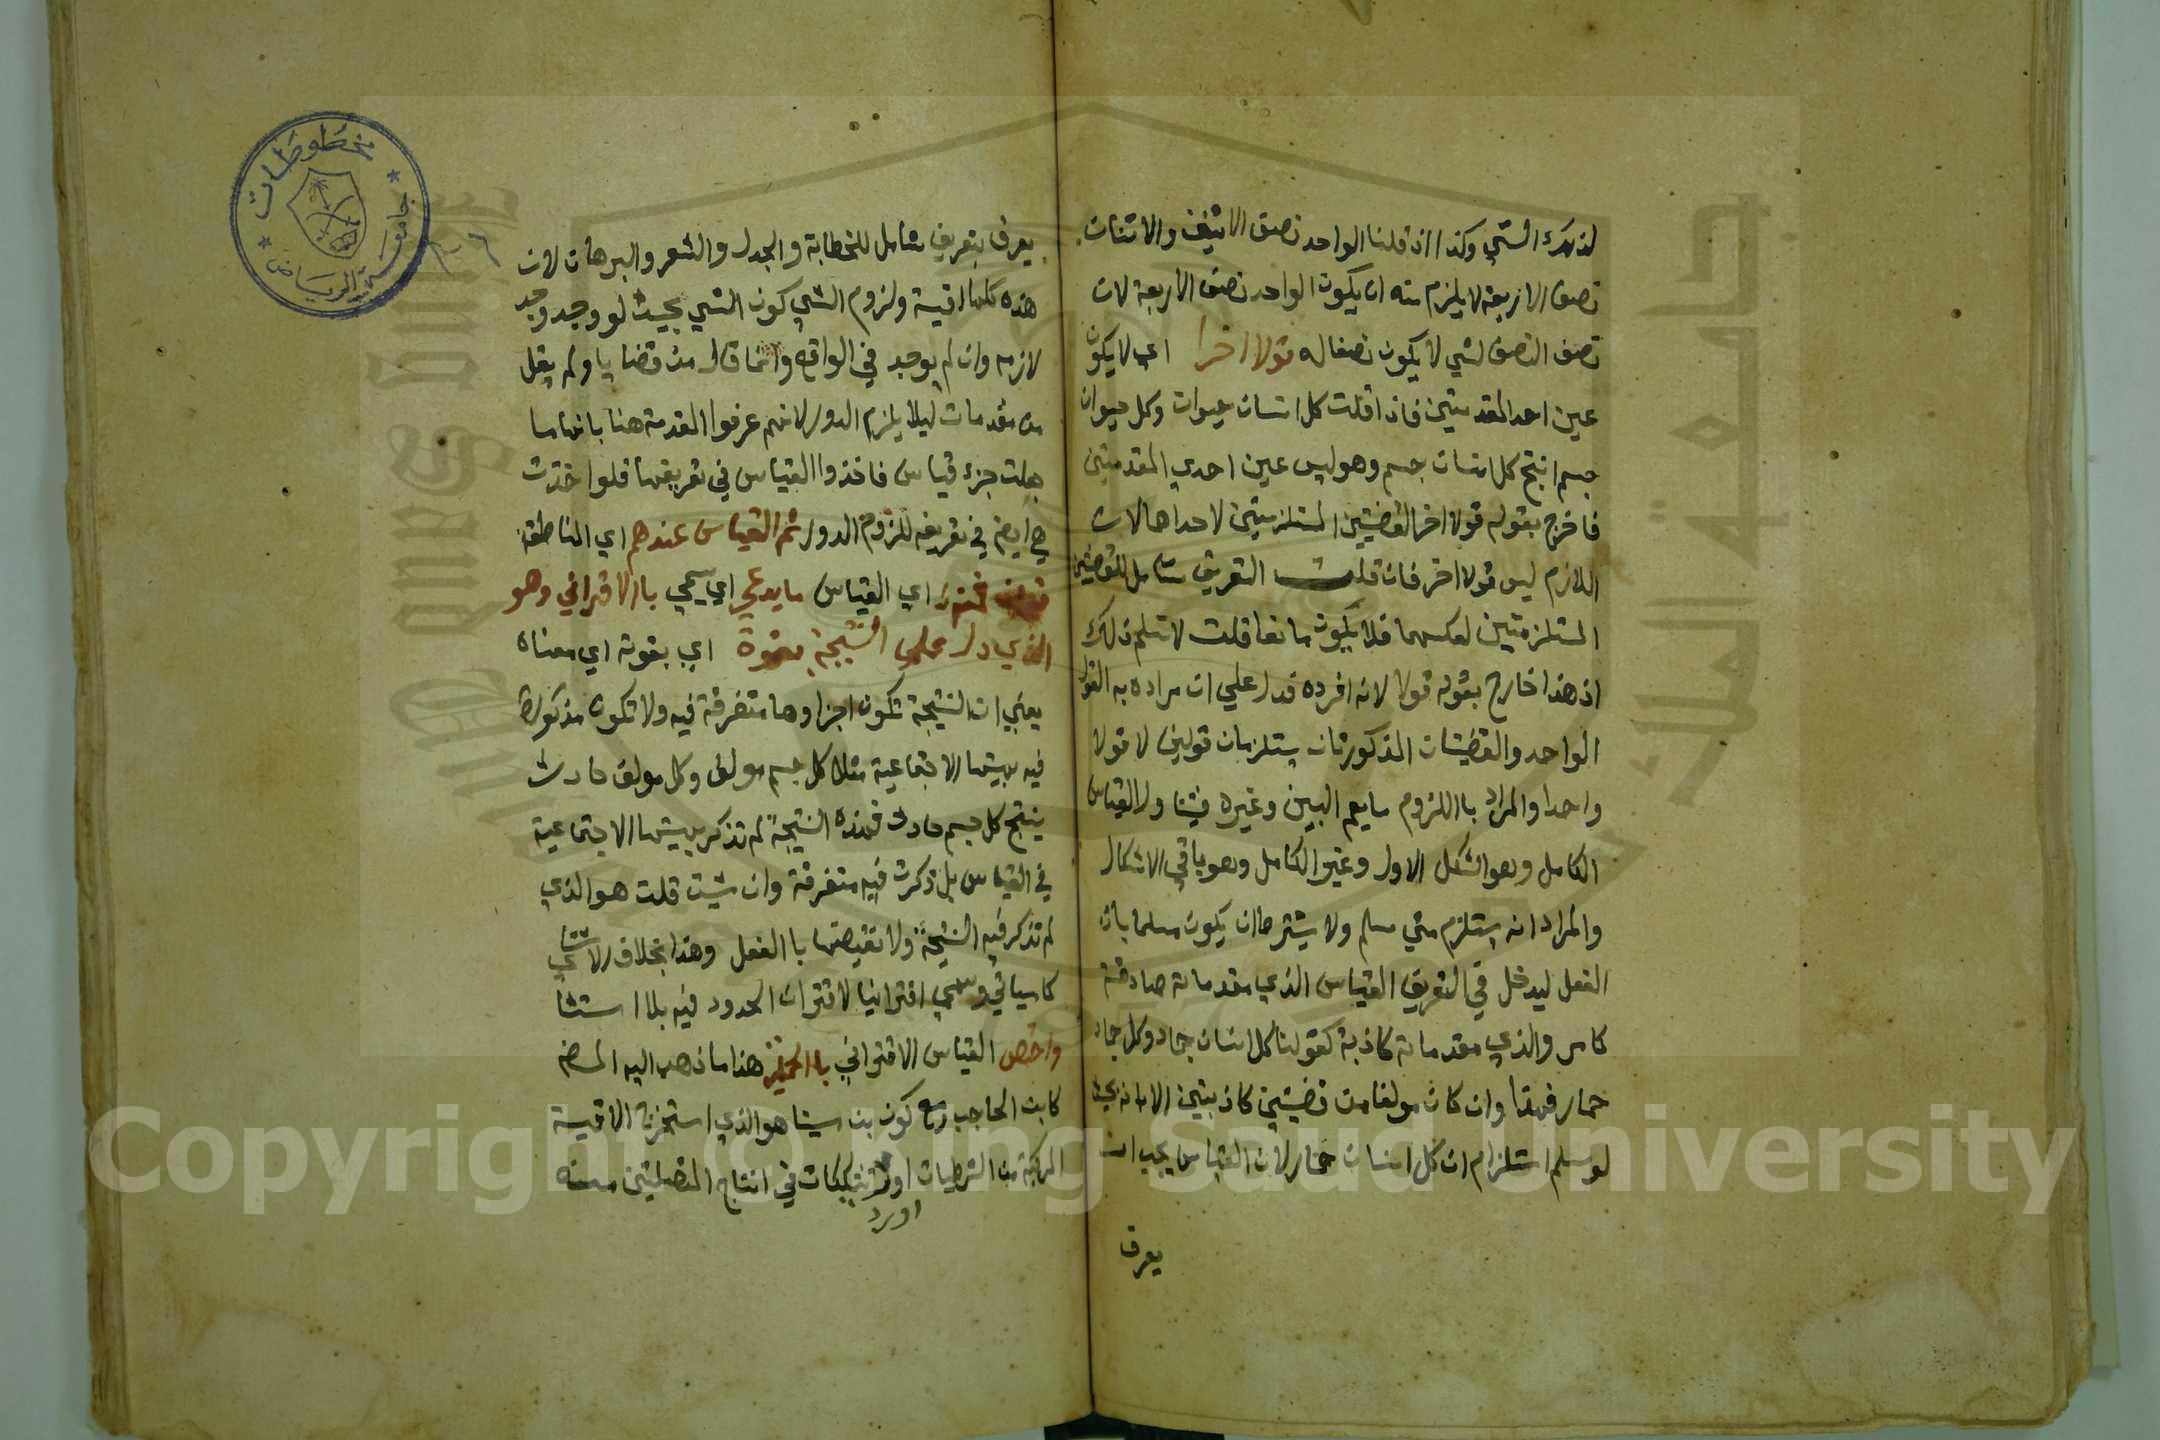 لذلك الشي وكذا اذ قلنا الواحد نصف الاثنين والاثنان
نصف الاربعة لا يلزم منه ان يكون الواحد نصف الاربعة لان
نصف النصف لشي لا يكون نصفا له قولا اخرا اي لا يكون
عين احد المقدمتين فاذا قلت كل انسان حيوان وكل حيوان
جسم انتج كل انسان جسم وهو ليس عين احدي المقدمتين
فاخرج بقوله قولا اخر القضيتين المستلزمتين لاحداهما لان
اللازم ليس قولا اخر فان قلت التعريف شامل للقضيتين
المستلزمتين لعكسهما فلا يكون مانعا قلت لا نسلم ذلك
اذ هذا خارج بقوله قولا لانه افرده فدل علي ان مراده به القول
الواحد والقضيتان المذكورتان يستلزمان قولين لا قولا
واحدا والمراد باللزوم ما يعم البين وغيره فيتناول القياس
الكامل وهو الشكل الاول وغير الكامل وهو باقي الاشكال
والمراد انه يستلزم متي سلم ولا يشترط ان يكون مسلما بان
الفعل ليدخل في التعريف القياس الذي مقدماته صادقة
كامر والذي مقدماته كاذبة كقولنا كل انسان جماد وكل جماد
حمار فهذا وان كان مولفا من قضيتين كاذبتين الا انه بحيث
لو سلم استلزام ان كل انسان حمار لان القياس يجب ان
يعرف
يعرف بتعريف شامل للخطابة والجدل والشعر والبرهان لان
هذه كلها اقيسة ولزوم الشي كون الشي بحيث لو وجد وجد
لازمه وان لم يوجد في الواقع وانما قال من قضايا ولم يقل
من مقدمات ليلا يلزم الدور لانهم عرفوا المقدمة هنا بانها ما
جعلت جزء قياس فاخذوا القياس في تعريفها فلوا خذت
هي ايضا في تعريفه للزوم الدور ثم القياس عندهم اي المناطقة
قسمان فمنه اي القياس ما يدعي اي يسمي باالاقتراني وهو
الذي دل علي النتيجة بقوة اي بقوته اي معناه
يعني ان النتيجة تكون اجزاوها متفرقة فيه ولا تكون مذكورة
فيه بهيئتها الاجتماعية مثلا كل جسم مولف وكل مولف حادث
ينتج كل جسم حادث فهذه النتيجة لم تذكر بهيئتها الاجتماعية
في القياس بل ذكرت فيه متفرقة وان شيت قلت هو الذي
لم تذكر فيه النتيجة ولا نقيضها باالفعل وهذا بخلاف الاستثنائي
كما سياتي وسمي اقترانيا لاقتران الحدود فيه بلا استثنا
واختص القياس الاقتراني باالحملية هذا ما ذهب اليه المصنف
كابن الحاجب زعم كون بن سينا هو الذي استخرج الاقيسة
المركبة من الشرطيات اورد تشكيكات في انتاج المتصلتين منه
اورد
مخطوطات
جامعة الرياض
جامعة الملك سعود
King Saud University
Copyright © King Saud University